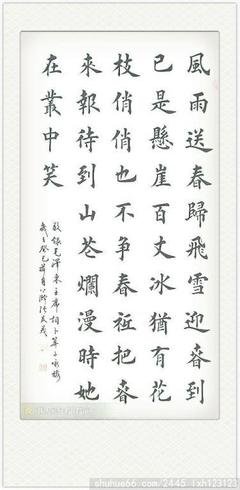 風雨送春歸飛雪迎春到
已是懸崖百丈冰猶有花
枝俏俏也不爭春祗把春
來報待到山芲爛漫時她
在叢中笑
敬錄毛澤東主席詞卜算子詠梅
shuhua66.com/2445 lxh123123